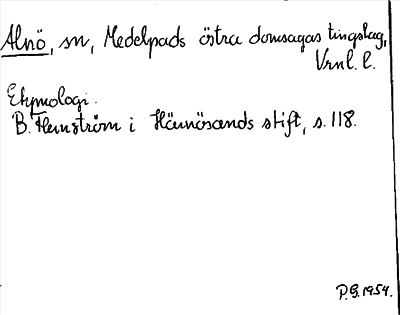 Alnö, sn, Medelpads östra domsagas tingslag,
Vrnl. l.
Etymologi.
B. Hemström i Härnösands stift, s. 118.
P.G. 1954.